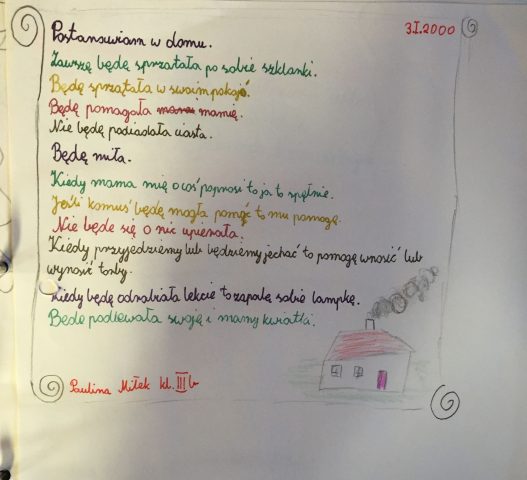 3.I.2000
Postanawiam w domu.
Zawszę będę sprzątała po sobie szklanki.
Będę sprzątała w swoim pokoju.
Będę pomagała mamie.
Nie będę podjadała ciasta.
Będę miła.
Kiedy mama mię o coś poprosi to ja to spełnie.
Jeśli komuś będę mogła pomóc to mu pomogę.
Nie będe się o nic upierała.
Kiedy przyjedziemy lub będziemy jechać to pomogę wnosić lub
wynosić torby.
Kiedy będę odrabiała lekcie to zapalę sobie lampkę.
Będe podlewała swoję i mamy kwiatki.
Paulina Miłek kl. III b